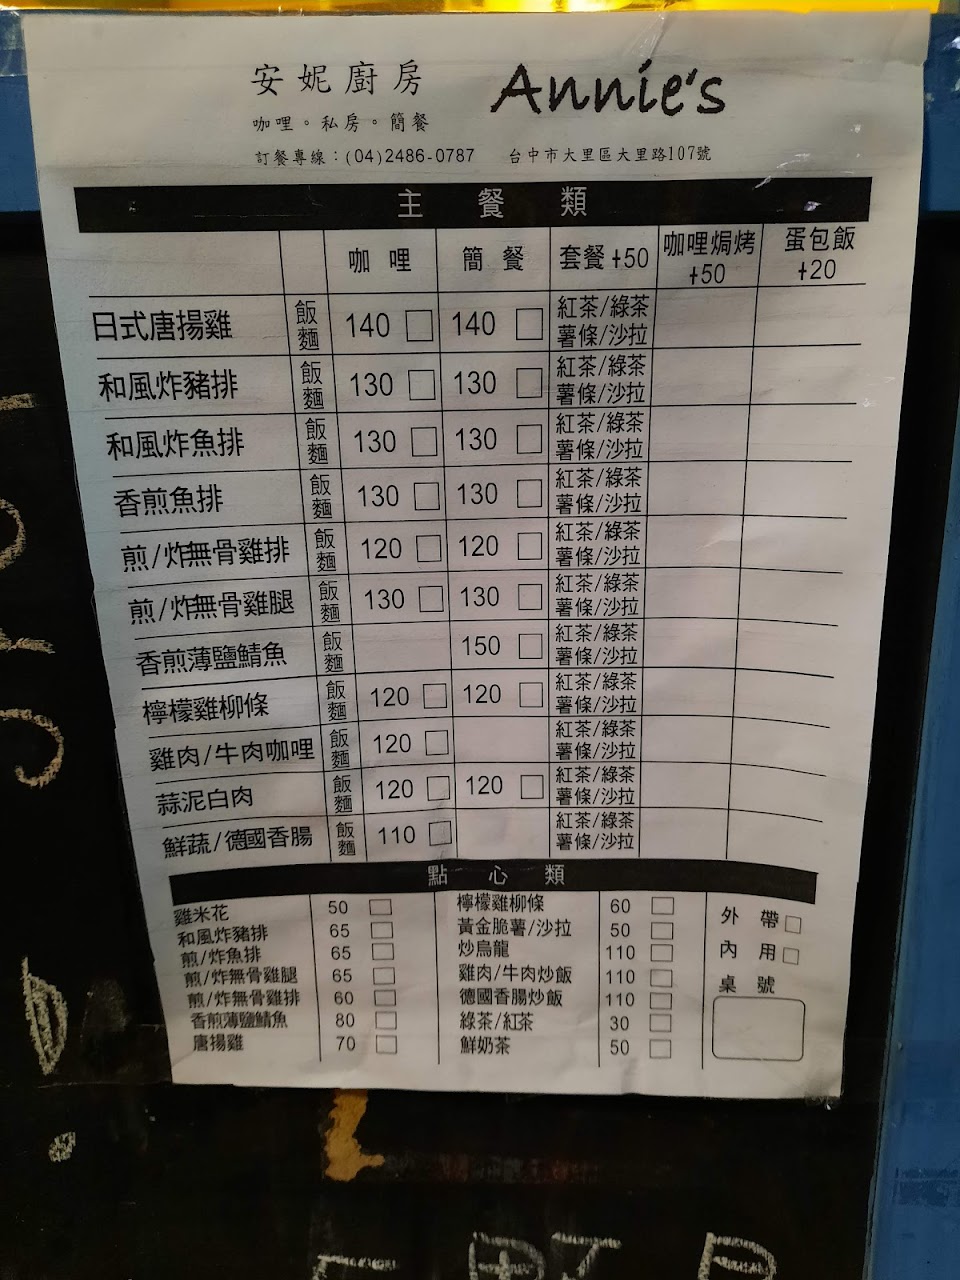 安妮廚房 Annie's
咖哩。私房。簡餐
訂餐專線：(04)2486-0787 台中市大里區大里路107號
主餐類
咖哩 簡餐 套餐+50 咖哩焗烤+50 蛋包飯+20
日式唐揚雞 飯麵 140 □ 140 □ 紅茶/綠茶 薯條/沙拉
和風炸豬排 飯麵 130 □ 130 □ 紅茶/綠茶 薯條/沙拉
和風炸魚排 飯麵 130 □ 130 □ 紅茶/綠茶 薯條/沙拉
香煎魚排 飯麵 130 □ 130 □ 紅茶/綠茶 薯條/沙拉
煎/炸無骨雞排 飯麵 120 □ 120 □ 紅茶/綠茶 薯條/沙拉
煎/炸無骨雞腿 飯麵 130 □ 130 □ 紅茶/綠茶 薯條/沙拉
香煎薄鹽鯖魚 飯麵 150 □ 紅茶/綠茶 薯條/沙拉
檸檬雞柳條 飯麵 120 □ 120 □ 紅茶/綠茶 薯條/沙拉
雞肉/牛肉咖哩 飯麵 120 □ 紅茶/綠茶 薯條/沙拉
蒜泥白肉 飯麵 120 □ 120 □ 紅茶/綠茶 薯條/沙拉
鮮蔬/德國香腸 飯麵 110 □ 紅茶/綠茶 薯條/沙拉
點心類
雞米花 50 □ 檸檬雞柳條 60 □
和風炸豬排 65 □ 黃金脆薯/沙拉 50 □
煎/炸魚排 65 □ 炒烏龍 110 □
煎/炸無骨雞腿 65 □ 雞肉/牛肉炒飯 110 □
煎/炸無骨雞排 60 □ 德國香腸炒飯 110 □
香煎薄鹽鯖魚 80 □ 綠茶/紅茶 30 □
唐揚雞 70 □ 鮮奶茶 50 □
外帶□
內用□
桌號